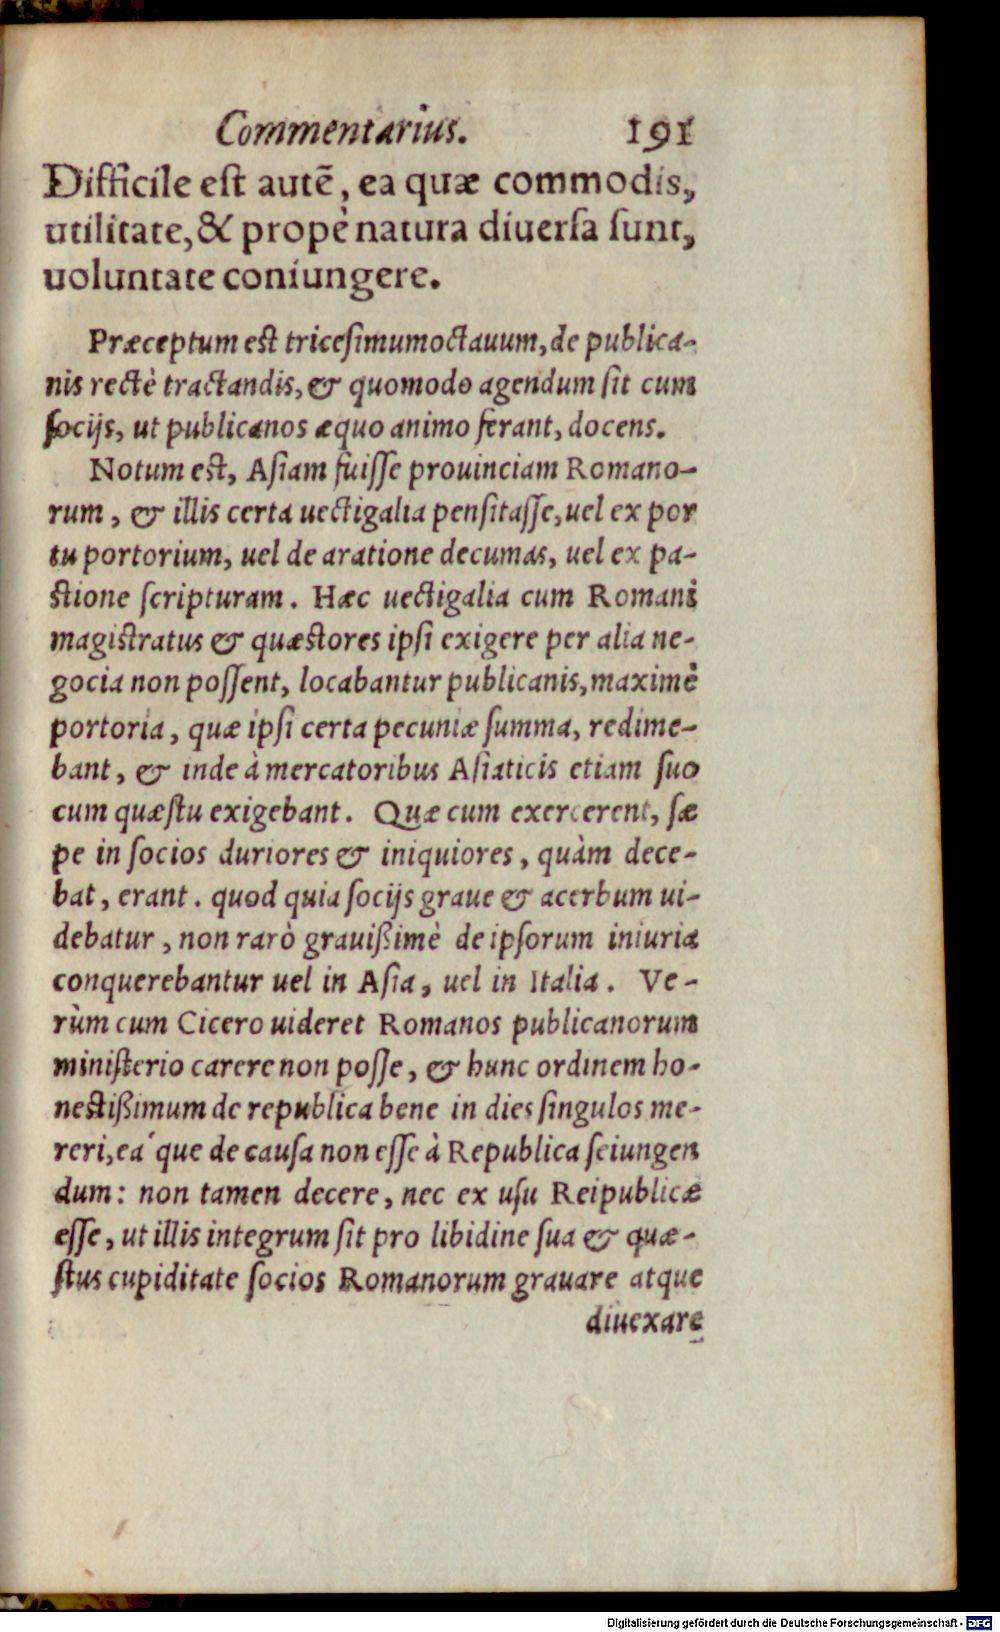 Commentarius. 191
Difficile est autẽ, ea quæ commodis,
utilitate, & propè natura diuersa sunt,
uoluntate coniungere.
Præceptum est tricesimumoctauum, de publica-
nis rectè tractandis, & quomodo agendum sit cum
socijs, ut publicanos æquo animo ferant, docens.
Notum est, Asiam fuisse prouinciam Romano-
rum, & illis certa uectigalia pensitasse, uel ex por
tu portorium, uel de aratione decumas, uel ex pa-
stione scripturam. Hæc uectigalia cum Romani
magistratus & quæstores ipsi exigere per alia ne-
gocia non possent, locabantur publicanis, maximè
portoria, quæ ipsi certa pecuniæ summa, redime-
bant, & inde à mercatoribus Asiaticis etiam suo
cum quæstu exigebant. Quæ cum exercerent, sæ
pe in socios duriores & iniquiores, quàm dece-
bat, erant. quod quia socijs graue & acerbum ui-
debatur, non rarò grauißimè de ipsorum iniuria
conquerebantur uel in Asia, uel in Italia. Ve-
rùm cum Cicero uideret Romanos publicanorum
ministerio carere non posse, & hunc ordinem ho-
nestißimum de republica bene in dies singulos me-
reri, eá que de causa non esse à Republica seiungen
dum: non tamen decere, nec ex usu Reipublicæ
esse, ut illis integrum sit pro libidine sua & quæ-
stus cupiditate socios Romanorum grauare atque
diuexare
Digitalisierung gefördert durch die Deutsche Forschungsgemeinschaft - DFG